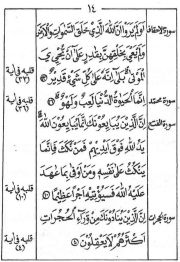 ١٤
سورة الاحقاف
اَوَلَمْ يَرَوْا اَنَّ اللّٰهَ الَّذِيْ خَلَقَ السَّمٰوٰتِ وَالْاَرْضَ
وَلَمْ يَعْيَ بِخَلْقِهِنَّ بِقٰدِرٍ عَلٰى اَنْ يُّحْيِيَ
الْمَوْتٰى بَلٰى اِنَّهٗ عَلٰى كُلِّ شَيْءٍ قَدِيْرٌ
قلبه فى اية
(٣٣)
سورة محمد
اِنَّمَا الْحَيٰوةُ الدُّنْيَا لَعِبٌ وَّلَهْوٌ
قلبه فى اية
(٣٦)
سورة الفتح
اِنَّ الَّذِيْنَ يُبَايِعُوْنَكَ اِنَّمَا يُبَايِعُوْنَ اللّٰهَ
يَدُ اللّٰهِ فَوْقَ اَيْدِيْهِمْ فَمَنْ نَّكَثَ فَاِنَّمَا
يَنْكُثُ عَلٰى نَفْسِهٖ وَمَنْ اَوْفٰى بِمَا عٰهَدَ
عَلَيْهُ اللّٰهَ فَسَيُؤْتِيْهِ اَجْرًا عَظِيْمًا
قلبه فى اية
(١٠)
سورة حجرات
اِنَّ الَّذِيْنَ يُنَادُوْنَكَ مِنْ وَّرَآءِ الْحُجُرٰتِ
اَكْثَرُهُمْ لَا يَعْقِلُوْنَ
قلبه فى اية
(٤)